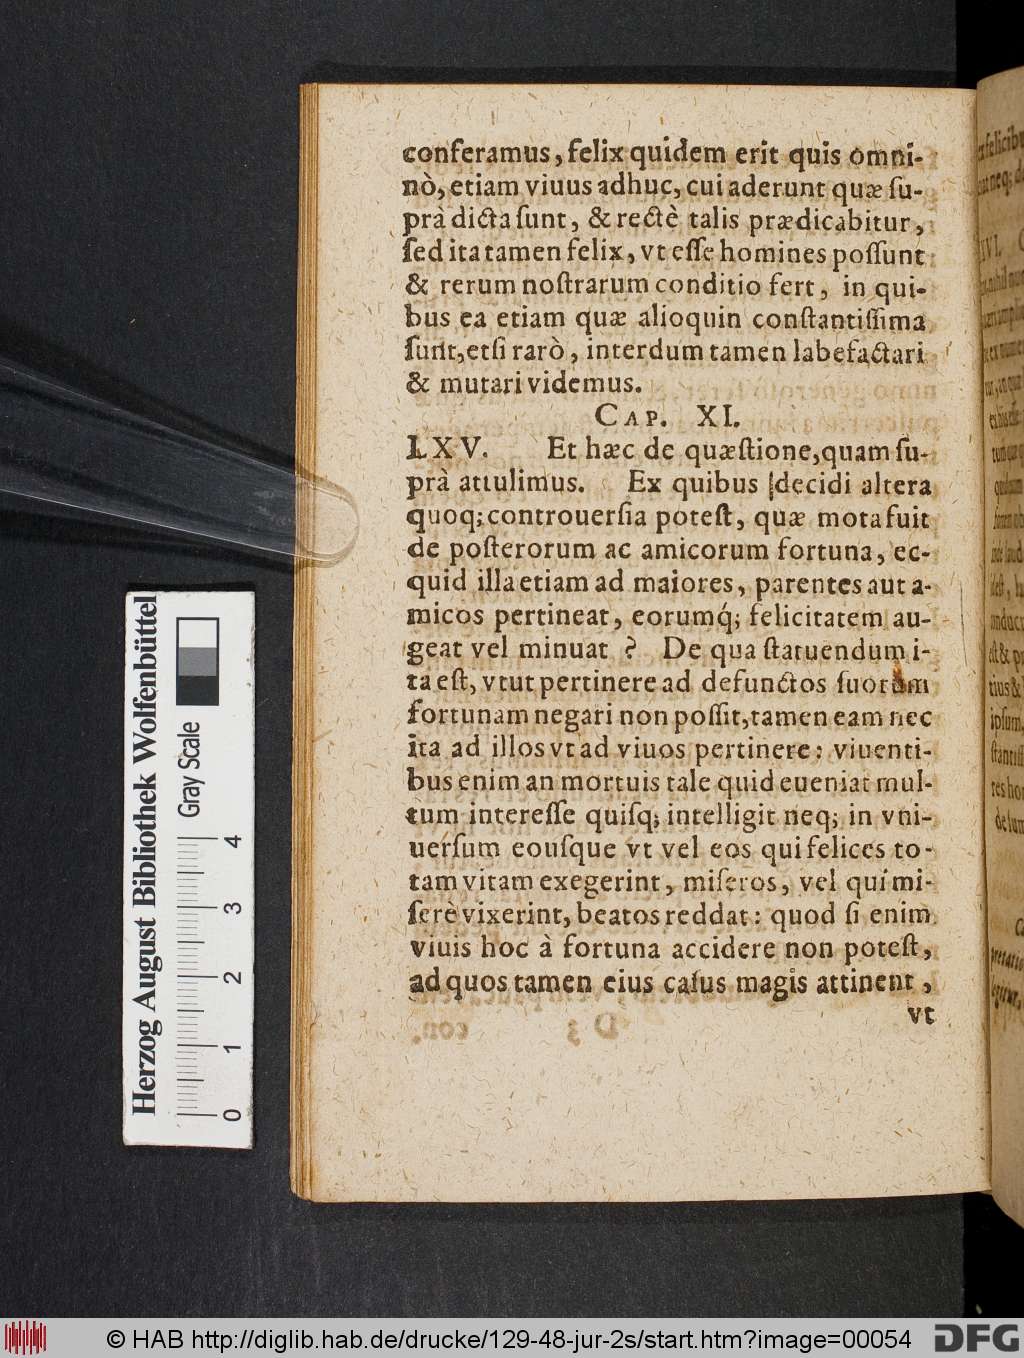 conferamus, felix quidem erit quis omni-
nò, etiam viuus adhuc, cui aderunt quæ ſu-
prà dicta ſunt, & rectè talis prædicabitur,
ſed ita tamen felix, vt eſſe homines poſſunt
& rerum noſtrarum conditio fert, in qui-
bus ea etiam quæ alioquin conſtantiſſima
ſunt, etſi rarò, interdum tamen labefactari
& mutari videmus.
CAP. XI.
LXV. Et hæc de quæſtione, quam ſu-
prà attulimus. Ex quibus decidi altera
quoq; controuerſia poteſt, quæ mota fuit
de poſterorum ac amicorum fortuna, ec-
quid illa etiam ad maiores, parentes aut a-
micos pertineat, eorumq́; felicitatem au-
geat vel minuat ? De qua ſtatuendum i-
ta eſt, vt ut pertinere ad defunctos ſuorum
fortunam negari non poſſit, tamen eam nec
ita ad illos vt ad viuos pertinere: viuenti-
bus enim an mortuis tale quid eueniat mul-
tum intereſſe quiſq; intelligit neq; in vni-
uerſum eouſque vt vel eos qui felices to-
tam vitam exegerint, miſeros, vel qui mi-
ſerè vixerint, beatos reddat: quod ſi enim
viuis hoc à fortuna accidere non poteſt,
ad quos tamen eius caſus magis attinent,
vt
Herzog August Bibliothek Wolfenbüttel
Gray Scale
0 1 2 3 4
© HAB http://diglib.hab.de/drucke/129-48-jur-2s/start.htm?image=00054
DFG